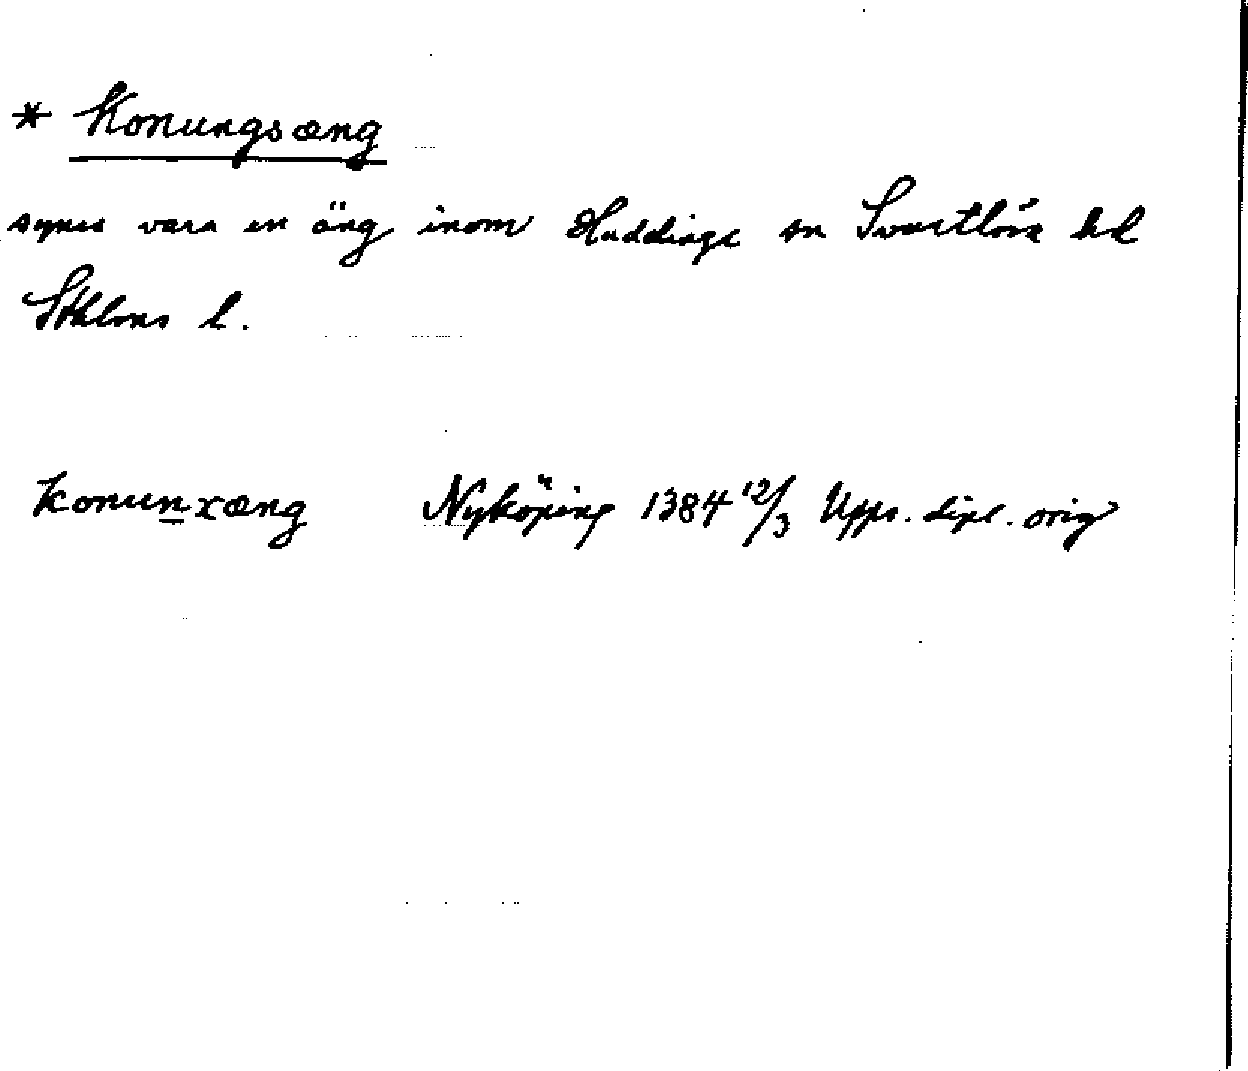 * Konungsæng
synes vara en äng inom Huddinge sn Svartlösa hd
Sthlms l.
konunxæng Nyköping 1384 12/3 Upps. dipl. orig